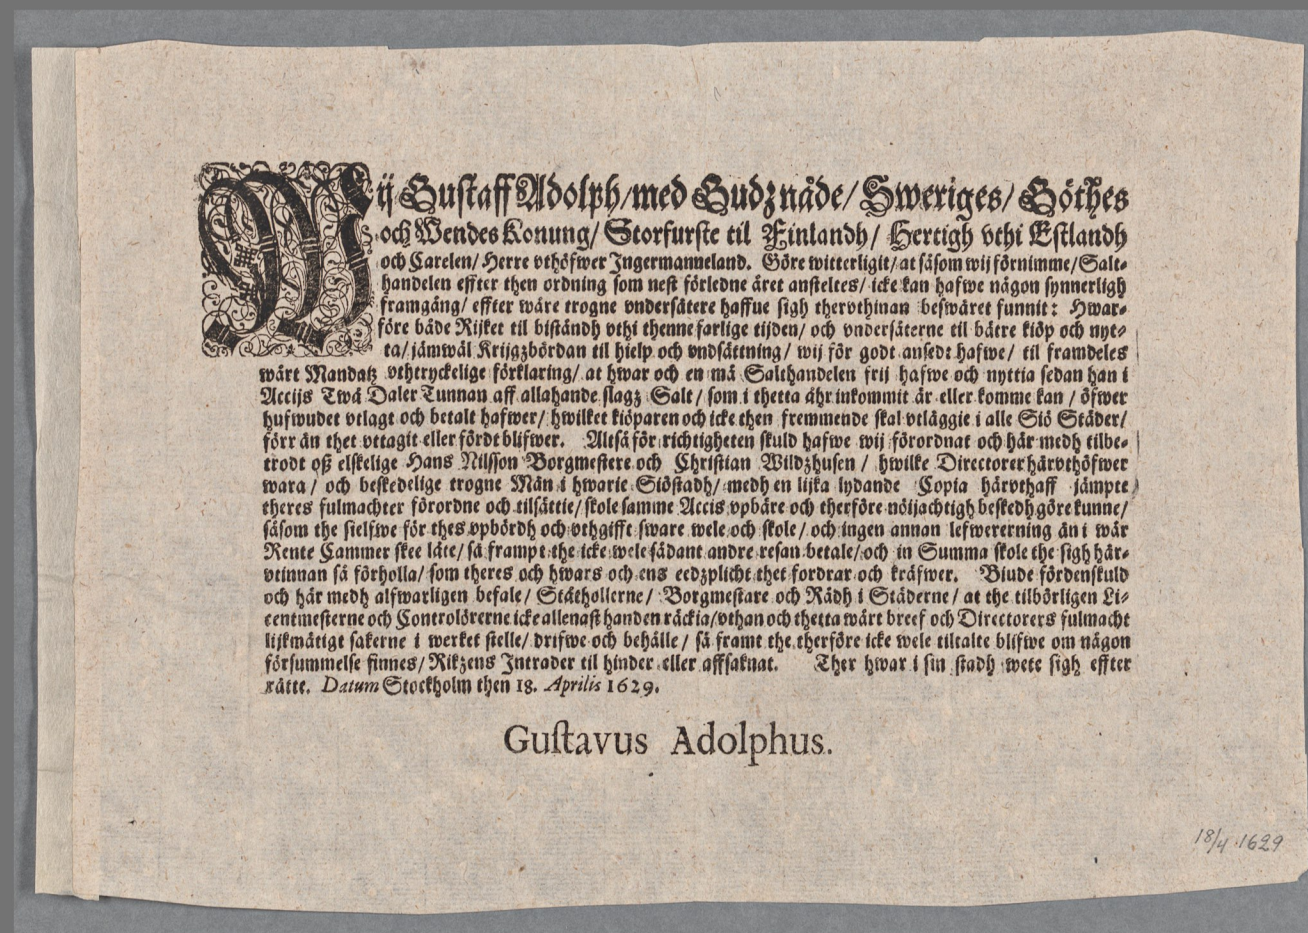 Wij Gustaff Adolph/med Gudz nåde/ Sweriges/ Göthes
och Wendes Konung/ Storfurste til Finlandh/ Hertigh vthi Estlandh
och Carelen/ Herre vthöfwer Ingermanneland. Göre witterligit/at såsom wij förnimme/Salt-
handelen effter then ordning som nest förledne året ansteltes/ icke kan hafwe någon synnerligh
framgång/ effter wåre trogne vndersåtere haffue sigh thervthinan beswäret funnit: Hwar-
före både Rijket til biståndh vthi thenne farlige tijden/ och vndersåterne til bätre kiöp och nyt-
ta/ jämwäl Krijgzbördan til hielp och vndsättning/ wij för godt ansedt hafwe/ til framdeles
wårt Mandatz vthtryckelige förklaring/ at hwar och en må Salthandelen frij hafwe och nyttia sedan han i
Accijs Twå Daler Tunnan aff allahande slagz Salt/ som i thetta åhr inkommit är eller komme kan/ öfwer
hufwudet vtlagt och betalt hafwer/ hwilket kiöparen och icke then fremmende skal vtläggie i alle Siö Städer/
förr än thet vttagit eller fördt blifwer. Altså för richtigheten skuld hafwe wij förordnat och här medh tilbe-
trodt oß elskelige Hans Nilsson Borgmestere och Christian Wildzhusen/ hwilke Directorer härvthöfwer
wara/ och beskedelige trogne Män i hwarie Siöstadh/ medh en lijka lydande Copia härvthaff jämpte
theres fulmachter förordne och tilsättie/ skole samme Accis vpbäre och therföre nöijachtigh beskedh göre kunne/
såsom the sielfwe för thes vpbördh och vthgifft sware wele och skole/ och ingen annan lefwererning än i wår
Rente Cammer skee låte/ så frampt the icke wele sådant andre resan betale/och in Summa skole the sigh här-
vtinnan så förholla/ som theres och hwars och ens eedzplicht thet fordrar och kräfwer. Biude fördenskuld
och här medh alfwarligen befale/ Ståthollerne/ Borgmestare och Rådh i Städerne/ at the tilbörligen Li-
centmesterne och Controlörerne icke allenast handen räckia/vthan och thetta wårt breef och Directorers fulmacht
lijkmätigt sakerne i werket stelle/ drifwe och behålle/ så framt the therföre icke wele tiltalte blifwe om någon
försummelse finnes/ Rikzens Intrader til hinder eller affsaknat. Ther hwar i sin stadh wete sigh effter
rätte. Datum Stockholm then 18. Aprilis 1629.
Gustavus Adolphus.
18/4 1629